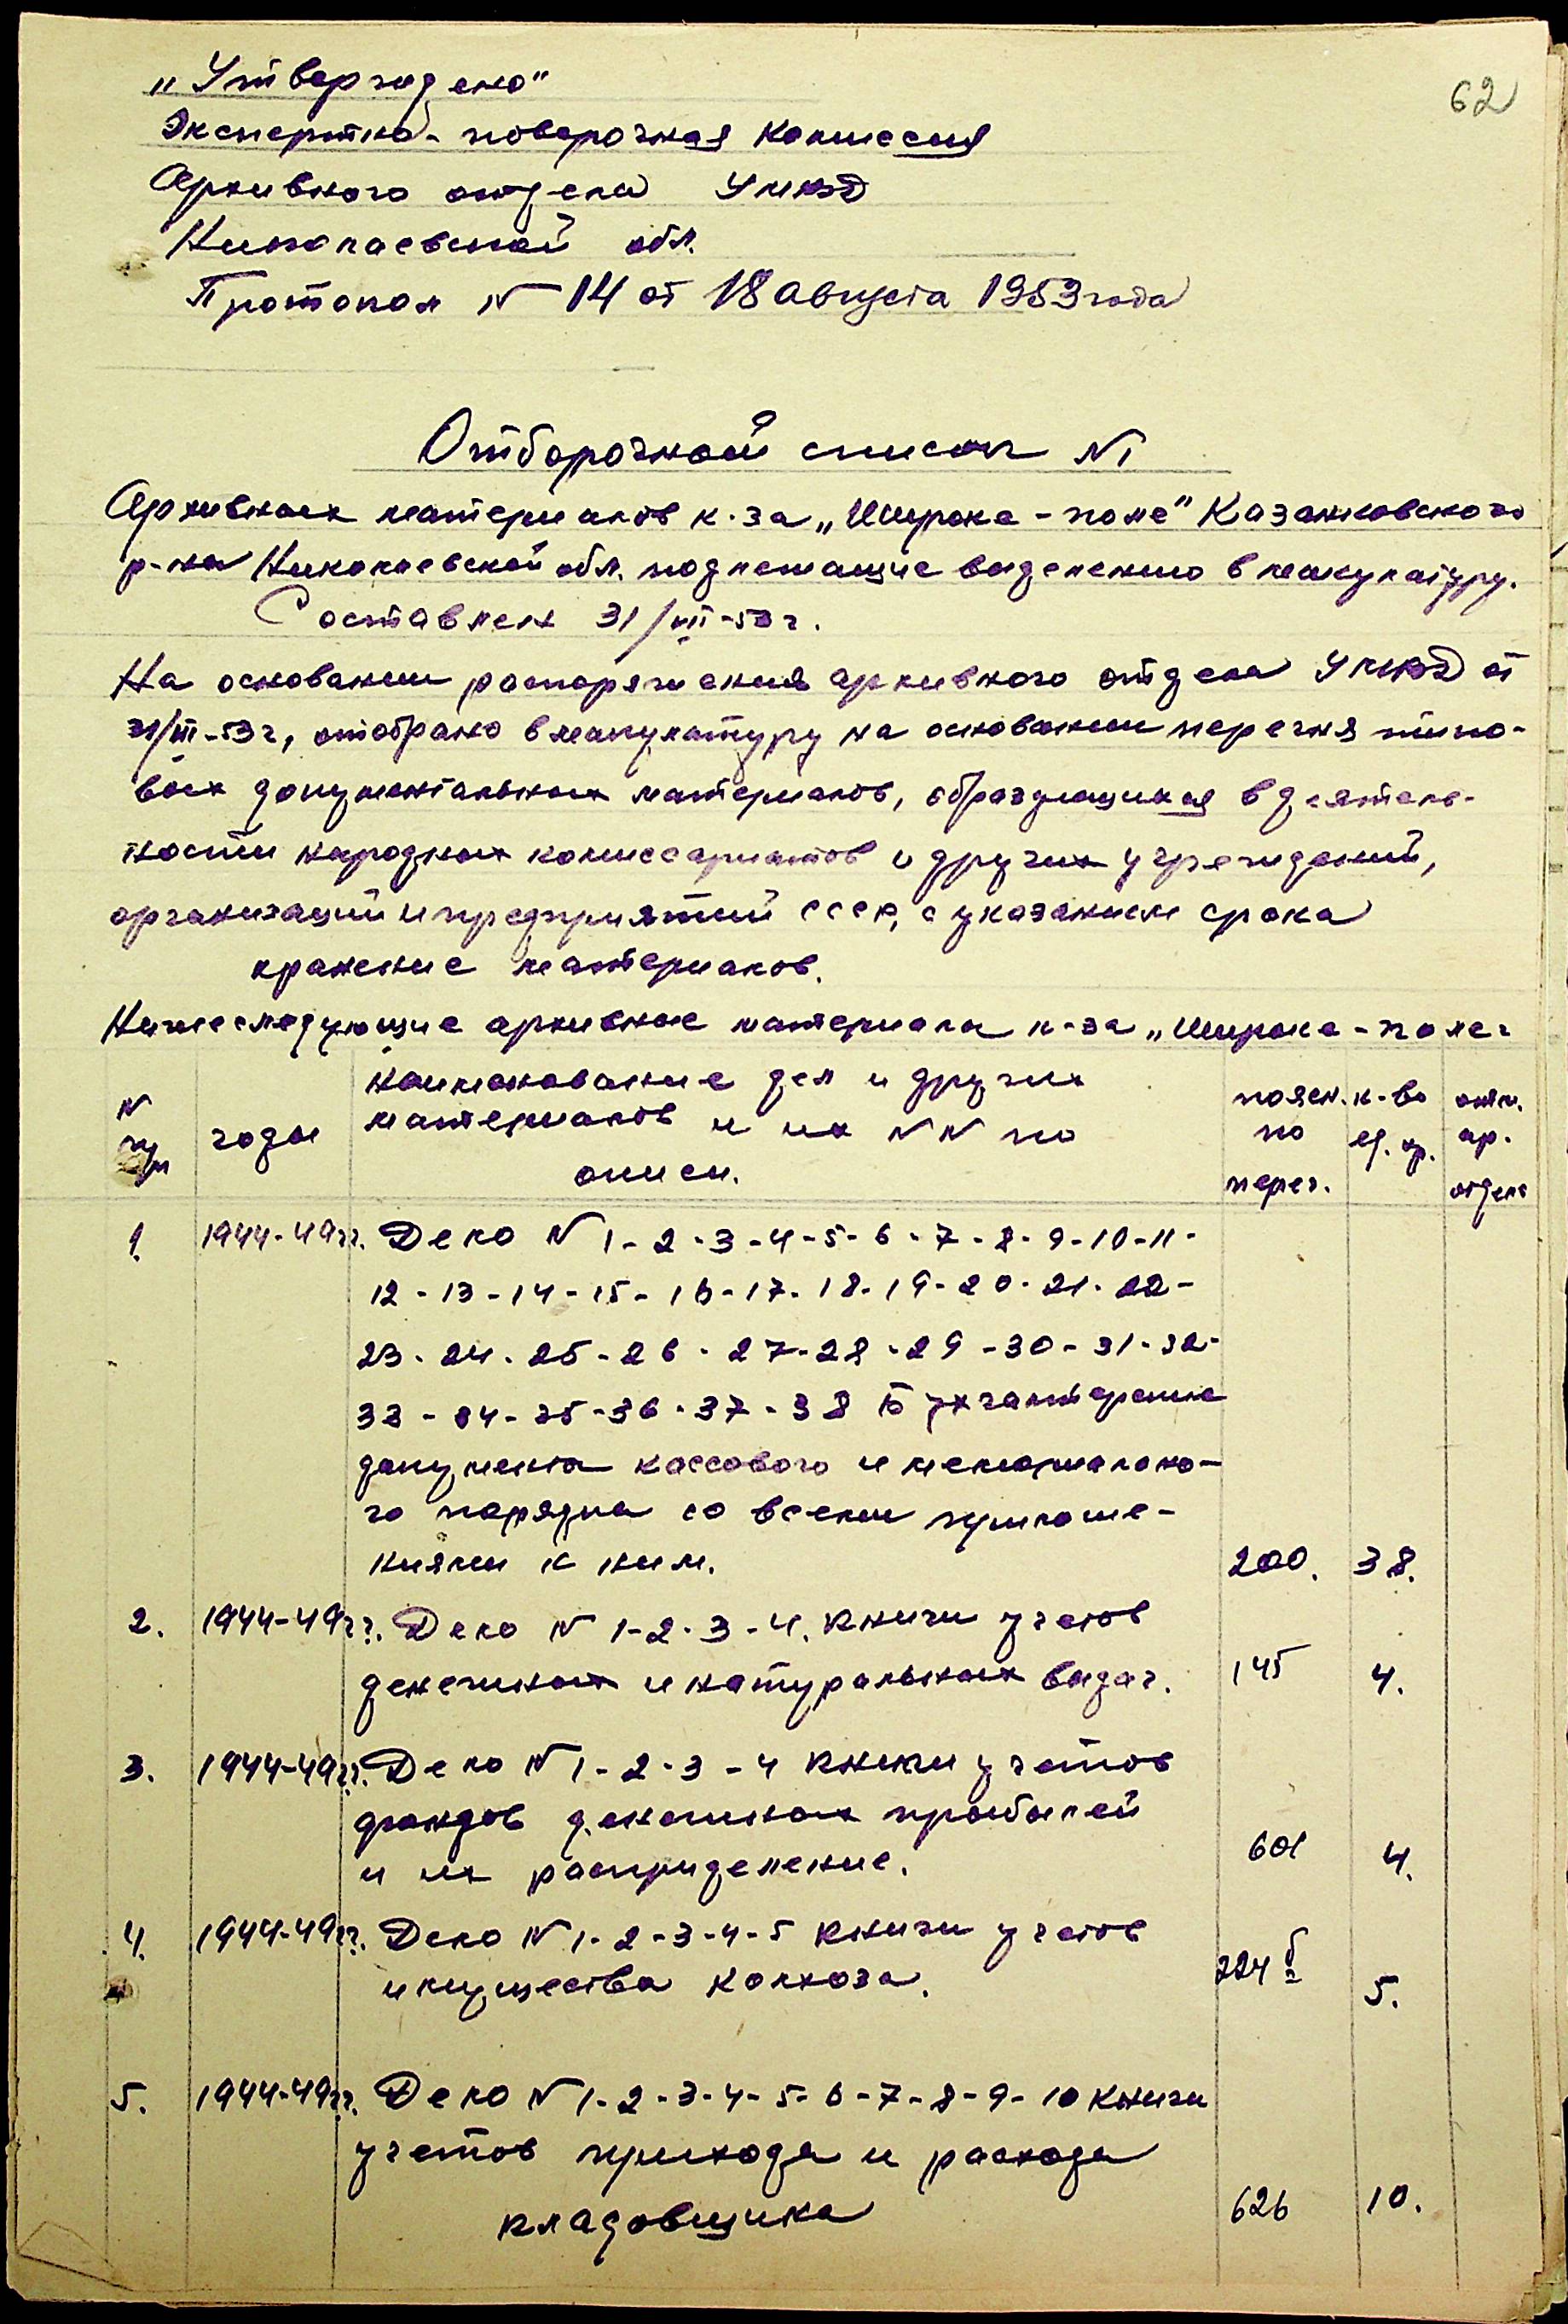 62
„Утверждено"
Экспертно-поверочная комиссия
Архивного отдела УМВД
Николаевской обл.
Протокол № 14 от 18 августа 1953 года
Отборочной список №1
Архивных материалов к-за „Широке-поле" Казанковского
р-на Николаевской обл. подлежащие выделению в макулатуру.
Составлен 31/VII-53г.
На основании распоряжения архивного отдела УМВД от
31/III-53г, отобрано в макулатуру на основании перечня типо-
вых документальных материалов, образующихся в деятель-
ности народных комиссариатов и других учреждений,
организаций и предприятий СССР, с указанием срока
хранение материалов.
Нижеследующие архивные материалы к-за „Широке-поле:
№ п/п годы наименование дел и других
материалов и их №№ по
описи.
поясн. по переч.
к-во ед. хр.
отм. ар. отдела
1. 1944-49гг. Дело № 1-2-3-4-5-6-7-8-9-10-11-
12-13-14-15-16-17-18-19-20-21-22-
23-24-25-26-27-28-29-30-31-32-
33-34-35-36-37-38 Бухгалтерские
документы кассового и мемориально-
го порядка со всеми приложе-
ниями к ним. 200. 38.
2. 1944-49гг. Дело № 1-2-3-4. книги учетов
денежных и натуральных выдач. 145 4.
3. 1944-49гг. Дело № 1-2-3-4 книги учетов
фондов денежных прыбылей
и их расприделение. 601 4.
4. 1944-49гг. Дело № 1-2-3-4-5 книги учетов
имущества колхоза. 224 5.
5. 1944-49гг. Дело № 1-2-3-4-5-6-7-8-9-10 книги
учетов прихода и расхода
кладовщика 626 10.